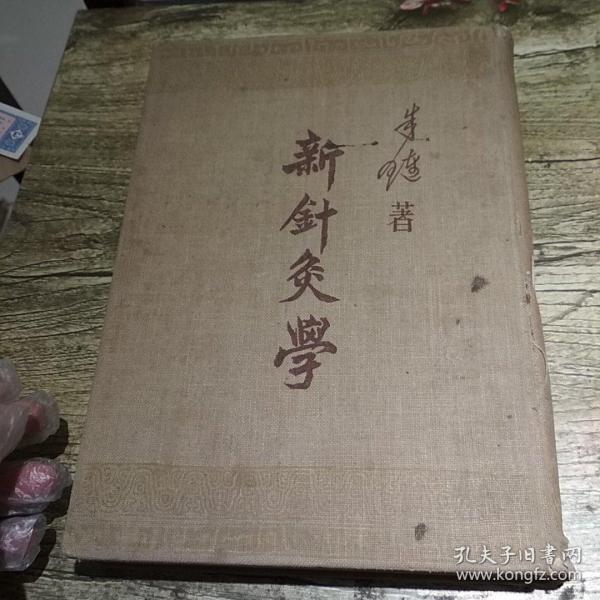 朱璉著
新針灸學
孔夫子旧書网
www.kongfz.com